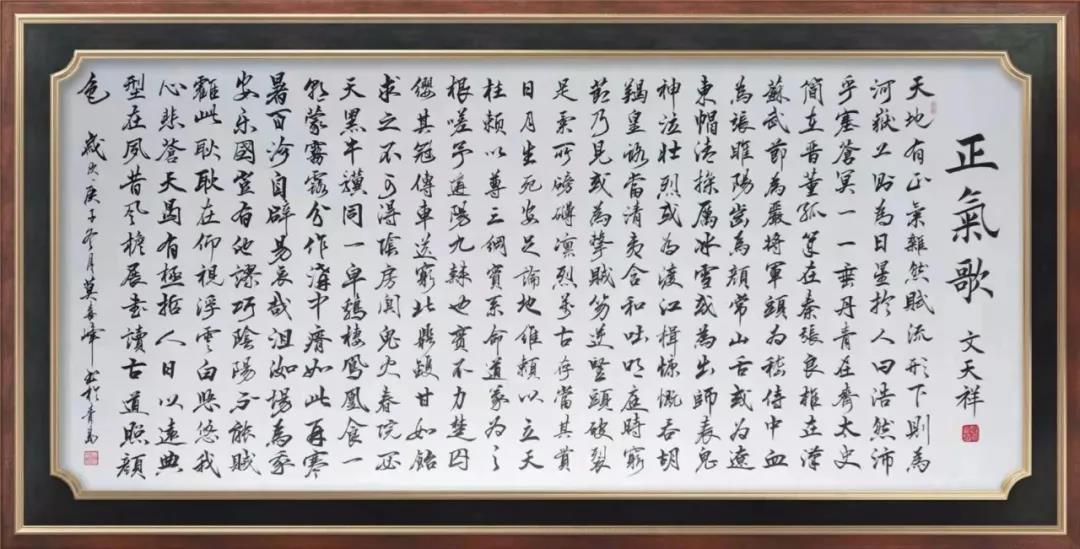 正氣歌
文天祥
天地有正氣雜然賦流形下則為
河嶽上則為日星於人曰浩然沛
乎塞蒼冥一一垂丹青在齊太史
簡在晉董狐筆在秦張良椎在漢
蘇武節為嚴將軍頭為嵇侍中血
為張睢陽齒為顏常山舌或為遼
東帽清操厲冰雪或為出師表鬼
神泣壯烈或為渡江楫慷慨吞胡
羯皇路當清夷含和吐明庭時窮
節乃見或為擊賊笏逆豎頭破裂
是氣所磅礴凜烈萬古存當其貫
日月生死安足論地維賴以立天
柱賴以尊三綱實系命道義為之
根嗟予遘陽九隸也實不力楚囚
纓其冠傳車送窮北鼎鑊甘如飴
求之不可得陰房闃鬼火春院閉
天黑牛驥同一皁鷄棲鳳凰食一
朝蒙霧露分作溝中瘠如此再寒
暑百沴自辟易哀哉沮洳場為我
安樂國豈有他謬巧陰陽不能賊
顧此耿耿在仰視浮雲白悠悠我
心悲蒼天曷有極哲人日以遠典
型在夙昔風檐展書讀古道照顏
色
歲次庚子冬月莫峰書於青島